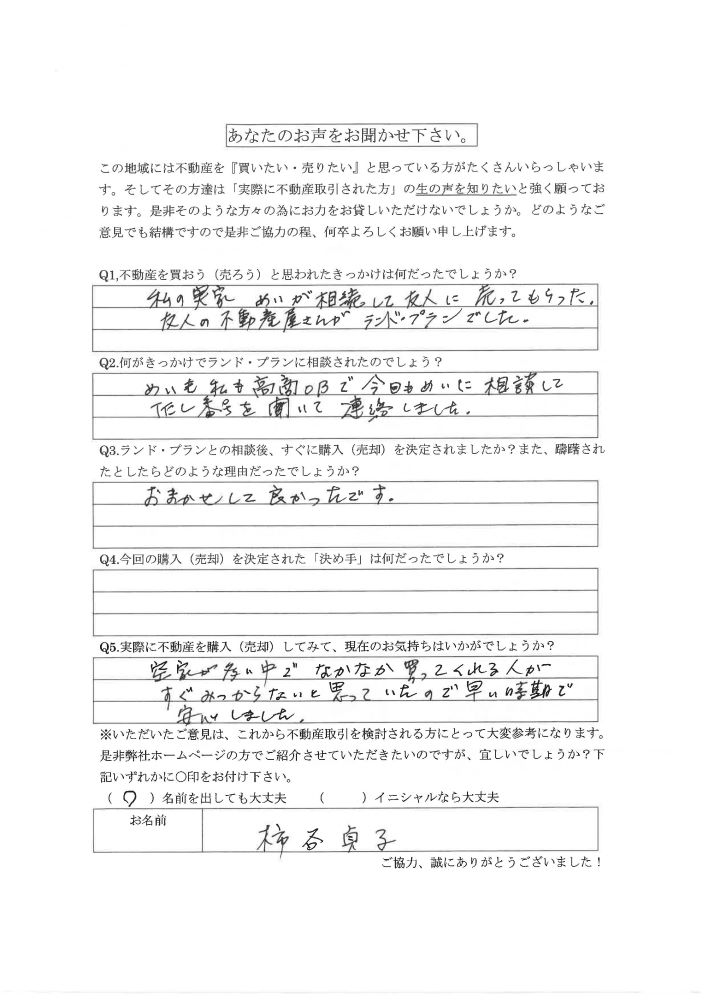 あなたのお声をお聞かせ下さい。
この地域には不動産を『買いたい・売りたい』と思っている方がたくさんいらっしゃいま
す。そしてその方達は「実際に不動産取引された方」の生の声を知りたいと強く願ってお
ります。是非そのような方々の為にお力をお貸しいただけないでしょうか。どのようなご
意見でも結構ですので是非ご協力の程、何卒よろしくお願い申し上げます。
Q1,不動産を買おう（売ろう）と思われたきっかけは何だったでしょうか？
私の実家 めいが相続して友人に 売ってもらった。
友人の不動産屋さんが ランド・プランでした。
Q2.何がきっかけでランド・プランに相談されたのでしょう？
めいも 私も 高商OBで 今回もめいに 相談して
TEL番号を 聞いて 連絡しました。
Q3.ランド・プランとの相談後、すぐに購入（売却）を決定されましたか？また、躊躇され
たとしたらどのような理由だったでしょうか？
おまかせして 良かったです。
Q4.今回の購入（売却）を決定された「決め手」は何だったでしょうか？
Q5.実際に不動産を購入（売却）してみて、現在のお気持ちはいかがでしょうか？
空家が多い中で なかなか 買ってくれる人が
すぐみつからないと思っていたので早い時期で
安心しました。
※いただいたご意見は、これから不動産取引を検討される方にとって大変参考になります。
是非弊社ホームページの方でご紹介させていただきたいのですが、宜しいでしょうか？下
記いずれかに〇印をお付け下さい。
（ 〇 ）名前を出しても大丈夫 （ ）イニシャルなら大丈夫
お名前 柿谷貞子
ご協力、誠にありがとうございました！